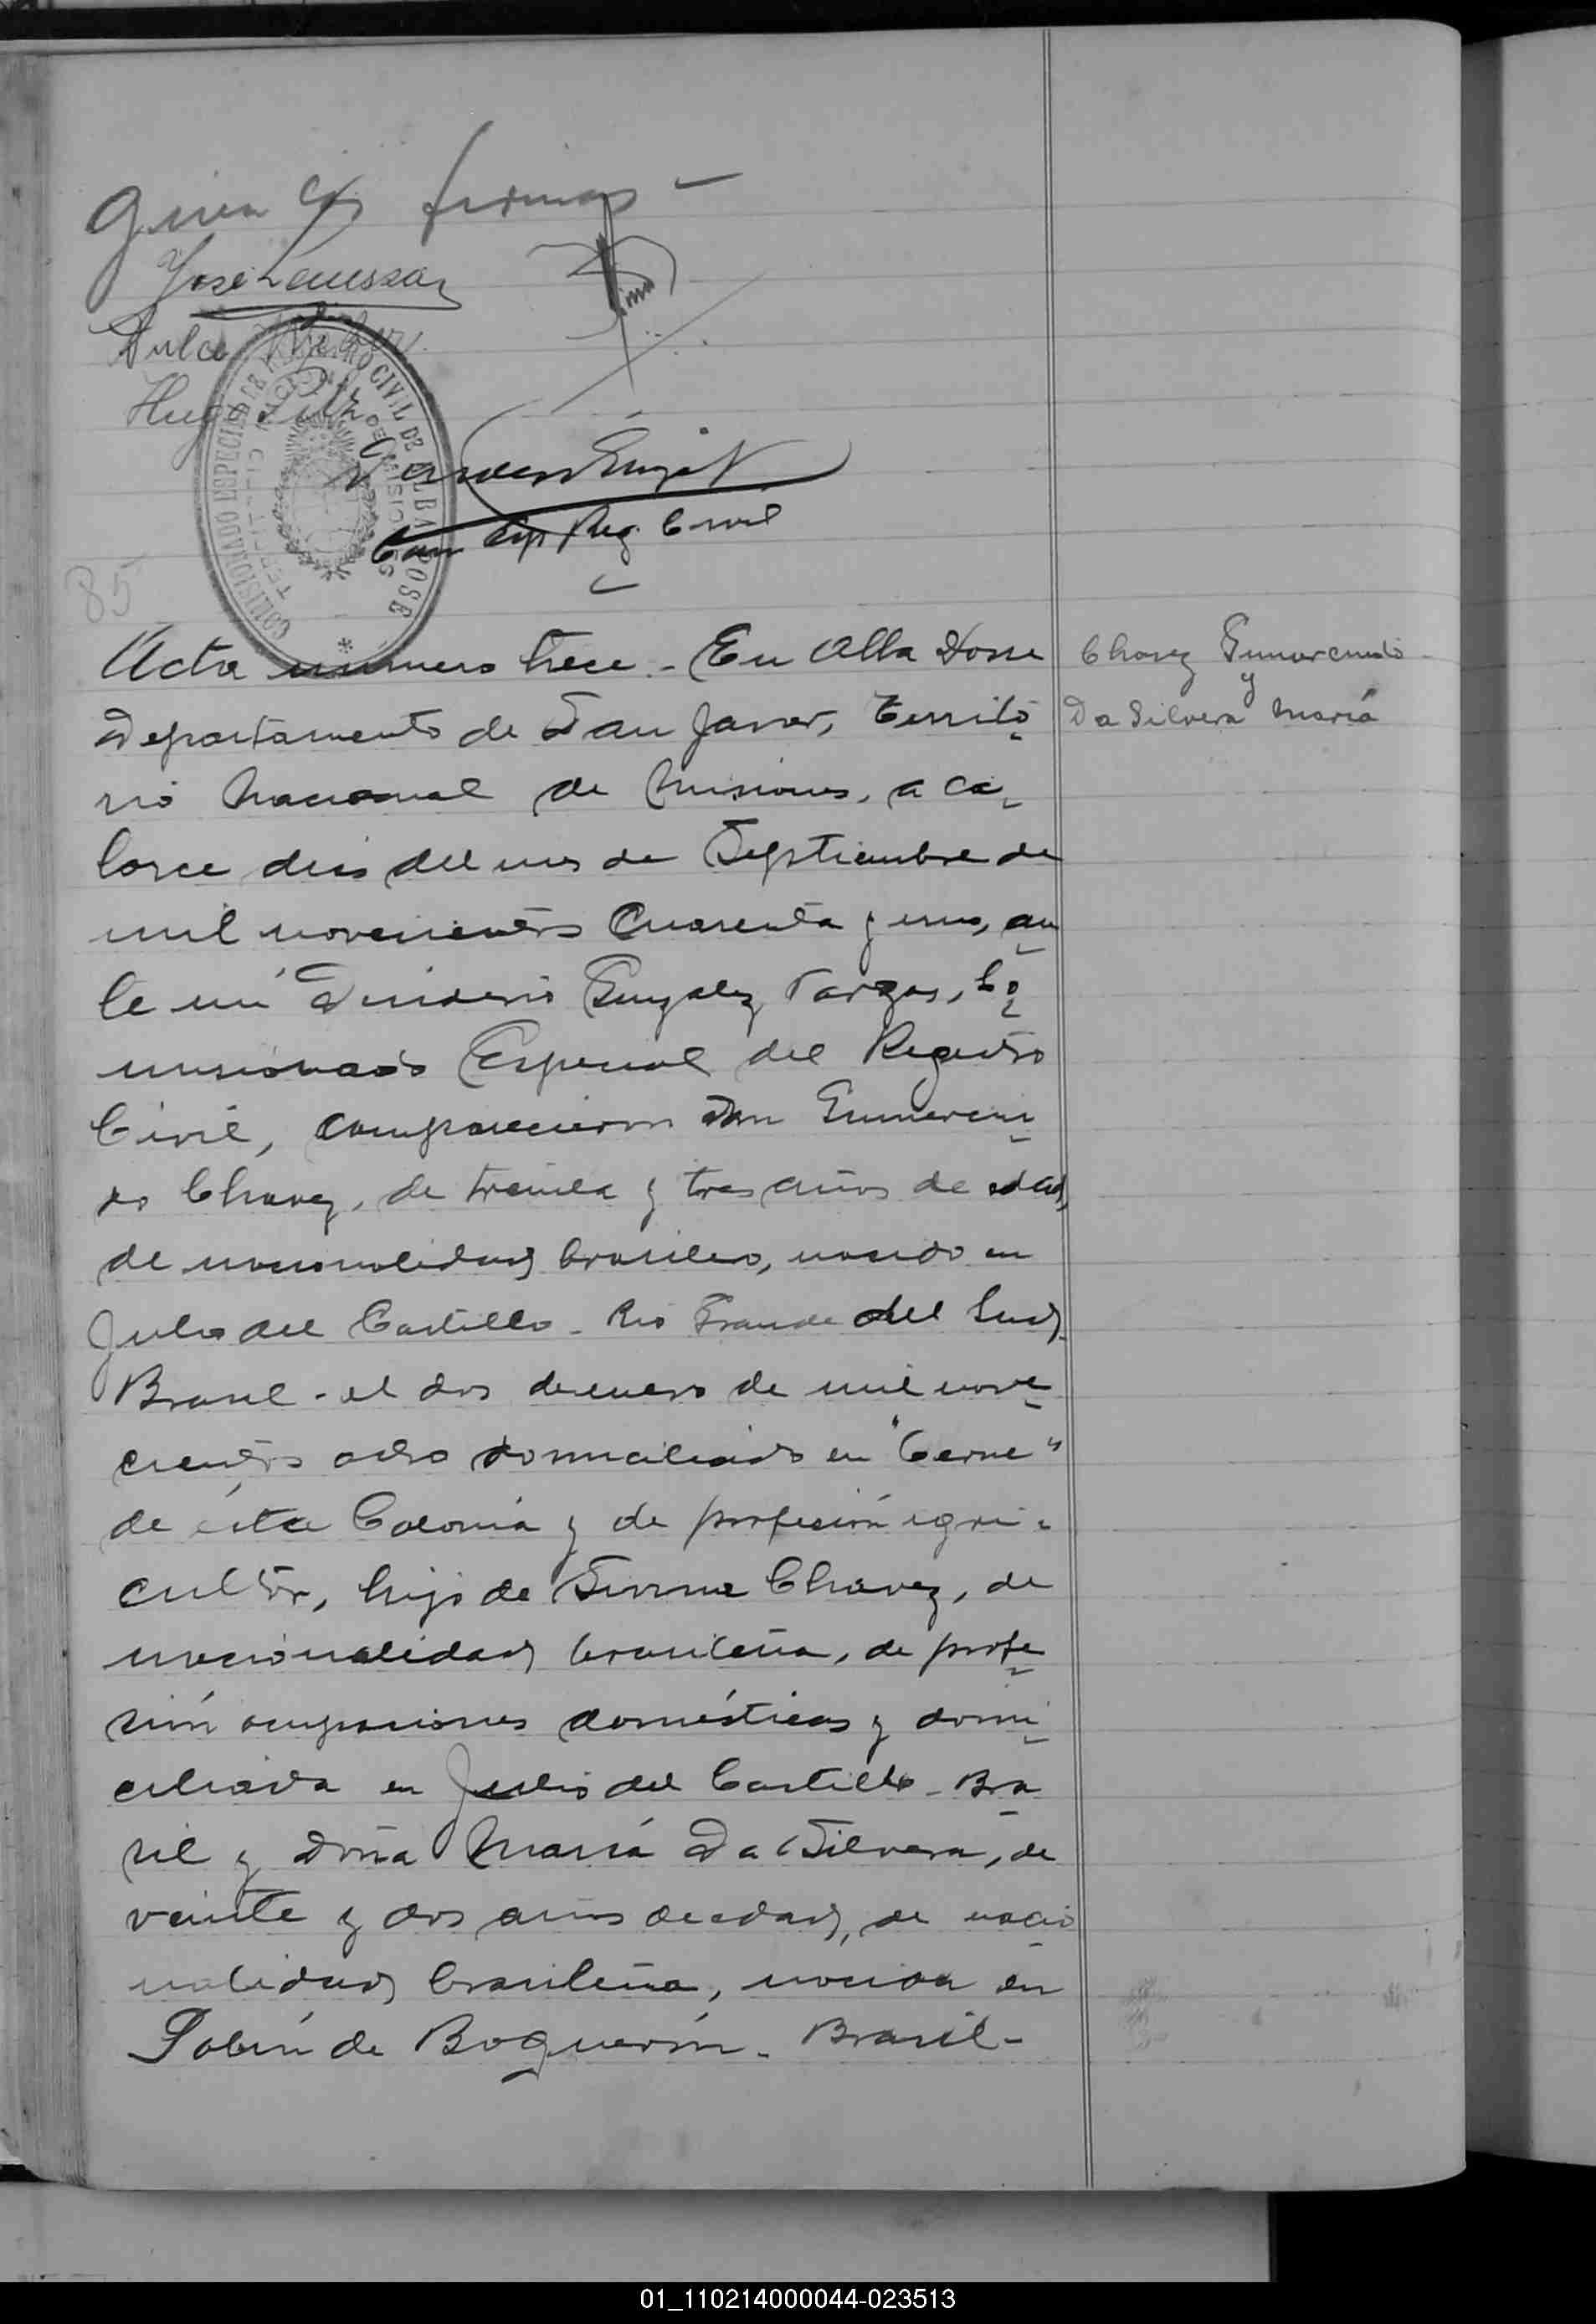 firmas -
José
Dulce
Hugo
COMISIONADO ESPECIAL DE REGISTRO CIVIL DE ALBA POSSE
TERRIT. NACIONAL DE MISIONES
Com Esp Reg. Civil
85
Acta numero trece.- En Alba Posse
Departamento de San Javier, territo
rio Nacional de Misiones, a ca-
torce dias del mes de Septiembre de
mil novecientos cuarenta y uno, an
te mi Desiderio Gonzalez Vargas, Co
misionado Especial del Registro
Civil, comparecieron don Gumercin
do Chavez, de treinta y tres años de edad,
de nacionalidad brasilero, nacido en
Julio del Castillo - Rio Grande del Sud,
Brasil - el dos de enero de mil nove
cientos ocho domiciliado en "Cerne"
de ésta Colonia y de profesión agri-
cultor, hijo de Chavez, de
nacionalidad brasileña, de profe
sión ocupaciones domésticas y domi
ciliada en Julio del Castillo - Bra
sil y doña María Da Silvera, de
veinte y dos años de edad, de nacio
nalidad brasileña, nacida en
de Boquerón - Brasil -
Chavez Gumercindo
y
Da Silvera María
01_110214000044-023513